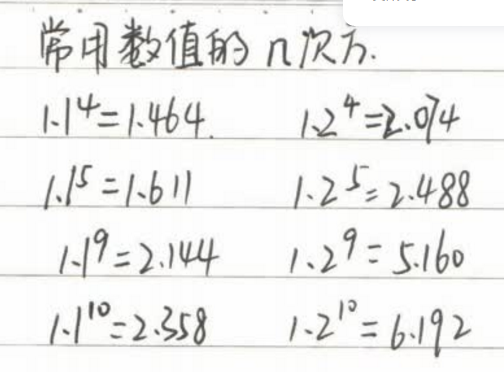 常用数值的n次方.
1.1⁴=1.464. 1.2⁴=2.074
1.1⁵=1.611 1.2⁵=2.488
1.1⁹=2.144 1.2⁹=5.160
1.1¹⁰=2.358 1.2¹⁰=6.192